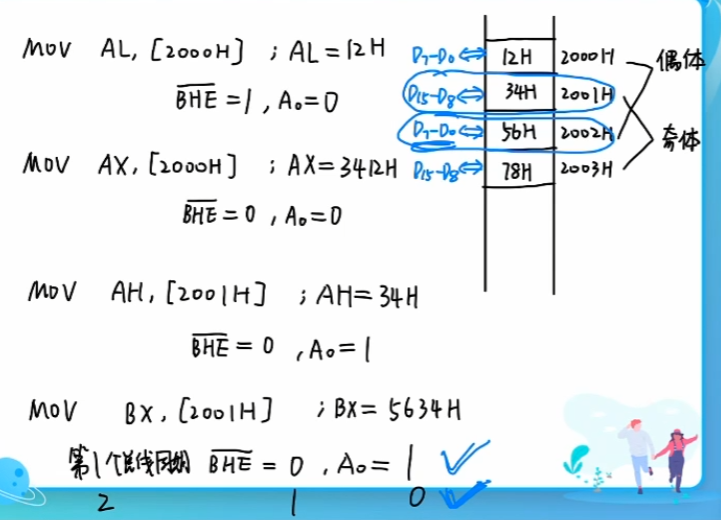 MOV AL, [2000H] ; AL=12H
B̅H̅E̅=1, A₀=0
MOV AX, [2000H] ; AX=3412H
B̅H̅E̅=0, A₀=0
MOV AH, [2001H] ; AH=34H
B̅H̅E̅=0, A₀=1
MOV BX, [2001H] ; BX=5634H
第1个总线周期 B̅H̅E̅=0, A₀=1
2 1 0
D₇-D₀ 12H 2000H 偶体
D₁₅-D₈ 34H 2001H
D₇-D₀ 56H 2002H 奇体
D₁₅-D₈ 78H 2003H